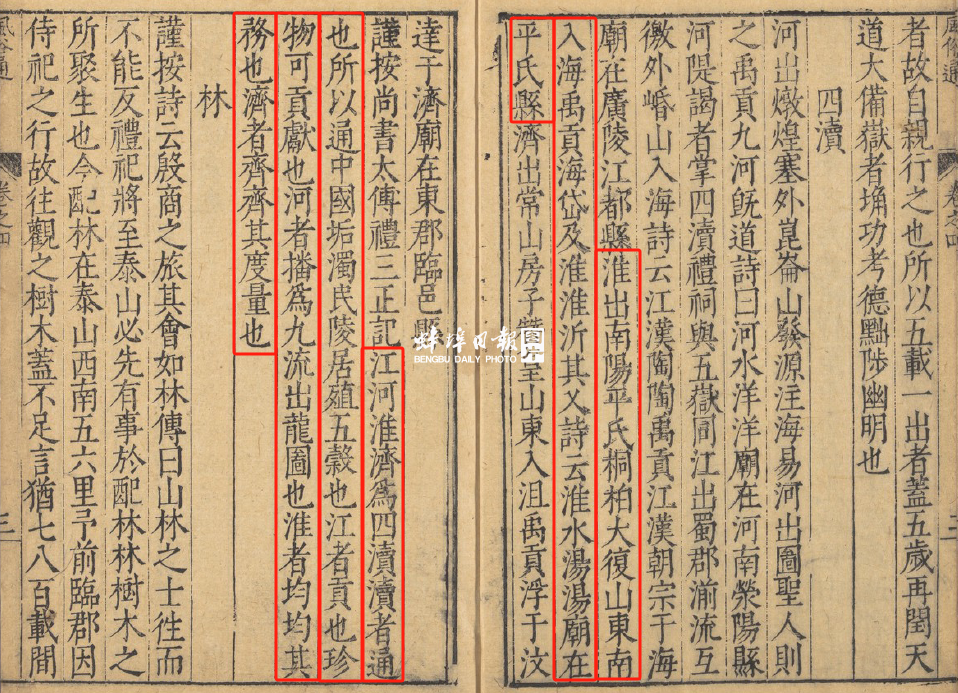 風俗通 卷之四 三
者故自親行之也所以五載一出者蓋五歲再閏天
道大備嶽者埆功考德黜陟幽明也
四瀆
河出燉煌塞外崑崙山發源注海易河出圖聖人則
之禹貢九河旣道詩曰河水洋洋廟在河南滎陽縣
河隄謁者掌四瀆禮祠與五嶽同江出蜀郡湔流互
徼外崏山入海詩云江漢陶陶禹貢江漢朝宗于海
廟在廣陵江都縣淮出南陽平氏桐柏大復山東南
入海禹貢海岱及淮淮沂其乂詩云淮水湯湯廟在
平氏縣濟出常山房子皇山東入沮禹貢浮于汶
達于濟廟在東郡臨邑縣
謹按尚書太傅禮三正記江河淮濟爲四瀆瀆者通
也所以通中國垢濁民陵居殖五穀也江者貢也珍
物可貢獻也河者播爲九流出龍圖也淮者均均其
務也濟者齊齊其度量也
林
謹按詩云殷商之旅其會如林傳曰山林之士徃而
不能反禮祀將至泰山必先有事於配林林樹木之
所聚生也今配林在泰山西南五六里予前臨郡因
侍祀之行故往觀之樹木蓋不足言猶七八百載間
風俗通 卷之四 三
蚌埠日報
BENGBU DAILY PHOTO
圖库